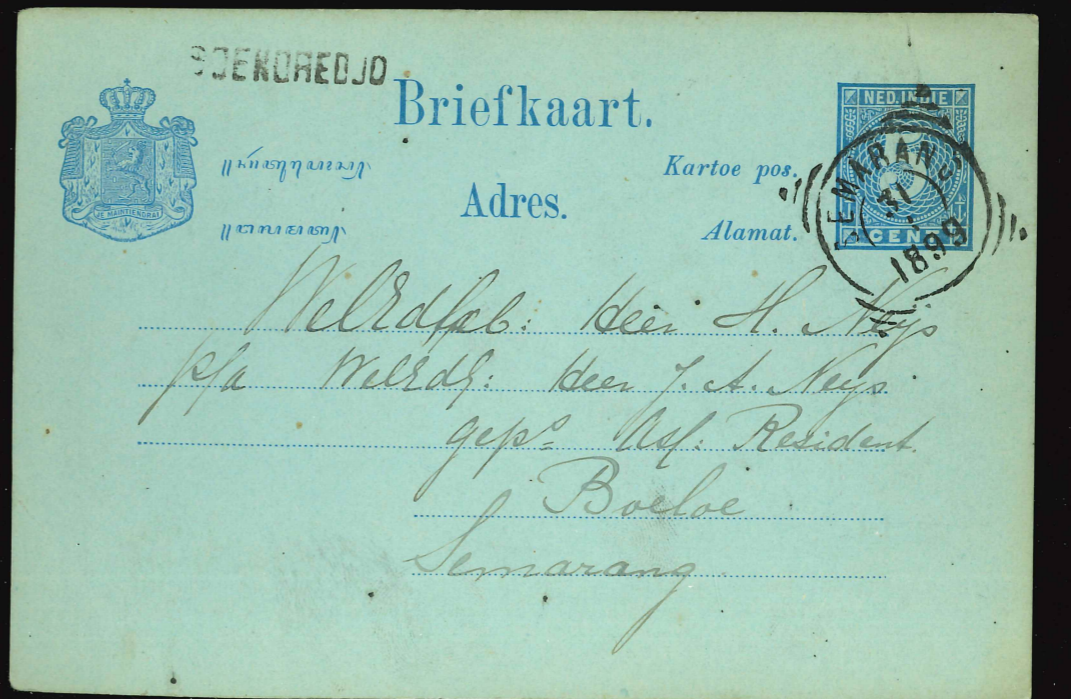 SOEKOREDJO
Briefkaart.
NED. INDIE
Kartoe pos.
Adres.
Alamat.
JE MAINTIENDRAI
CENT
SEMARANG
31
1899
WelEdGeb: Heer H. Neys
p/a WelEdG: Heer J. A. Neys
gepd Ass: Resident.
Boeloe
Semarang